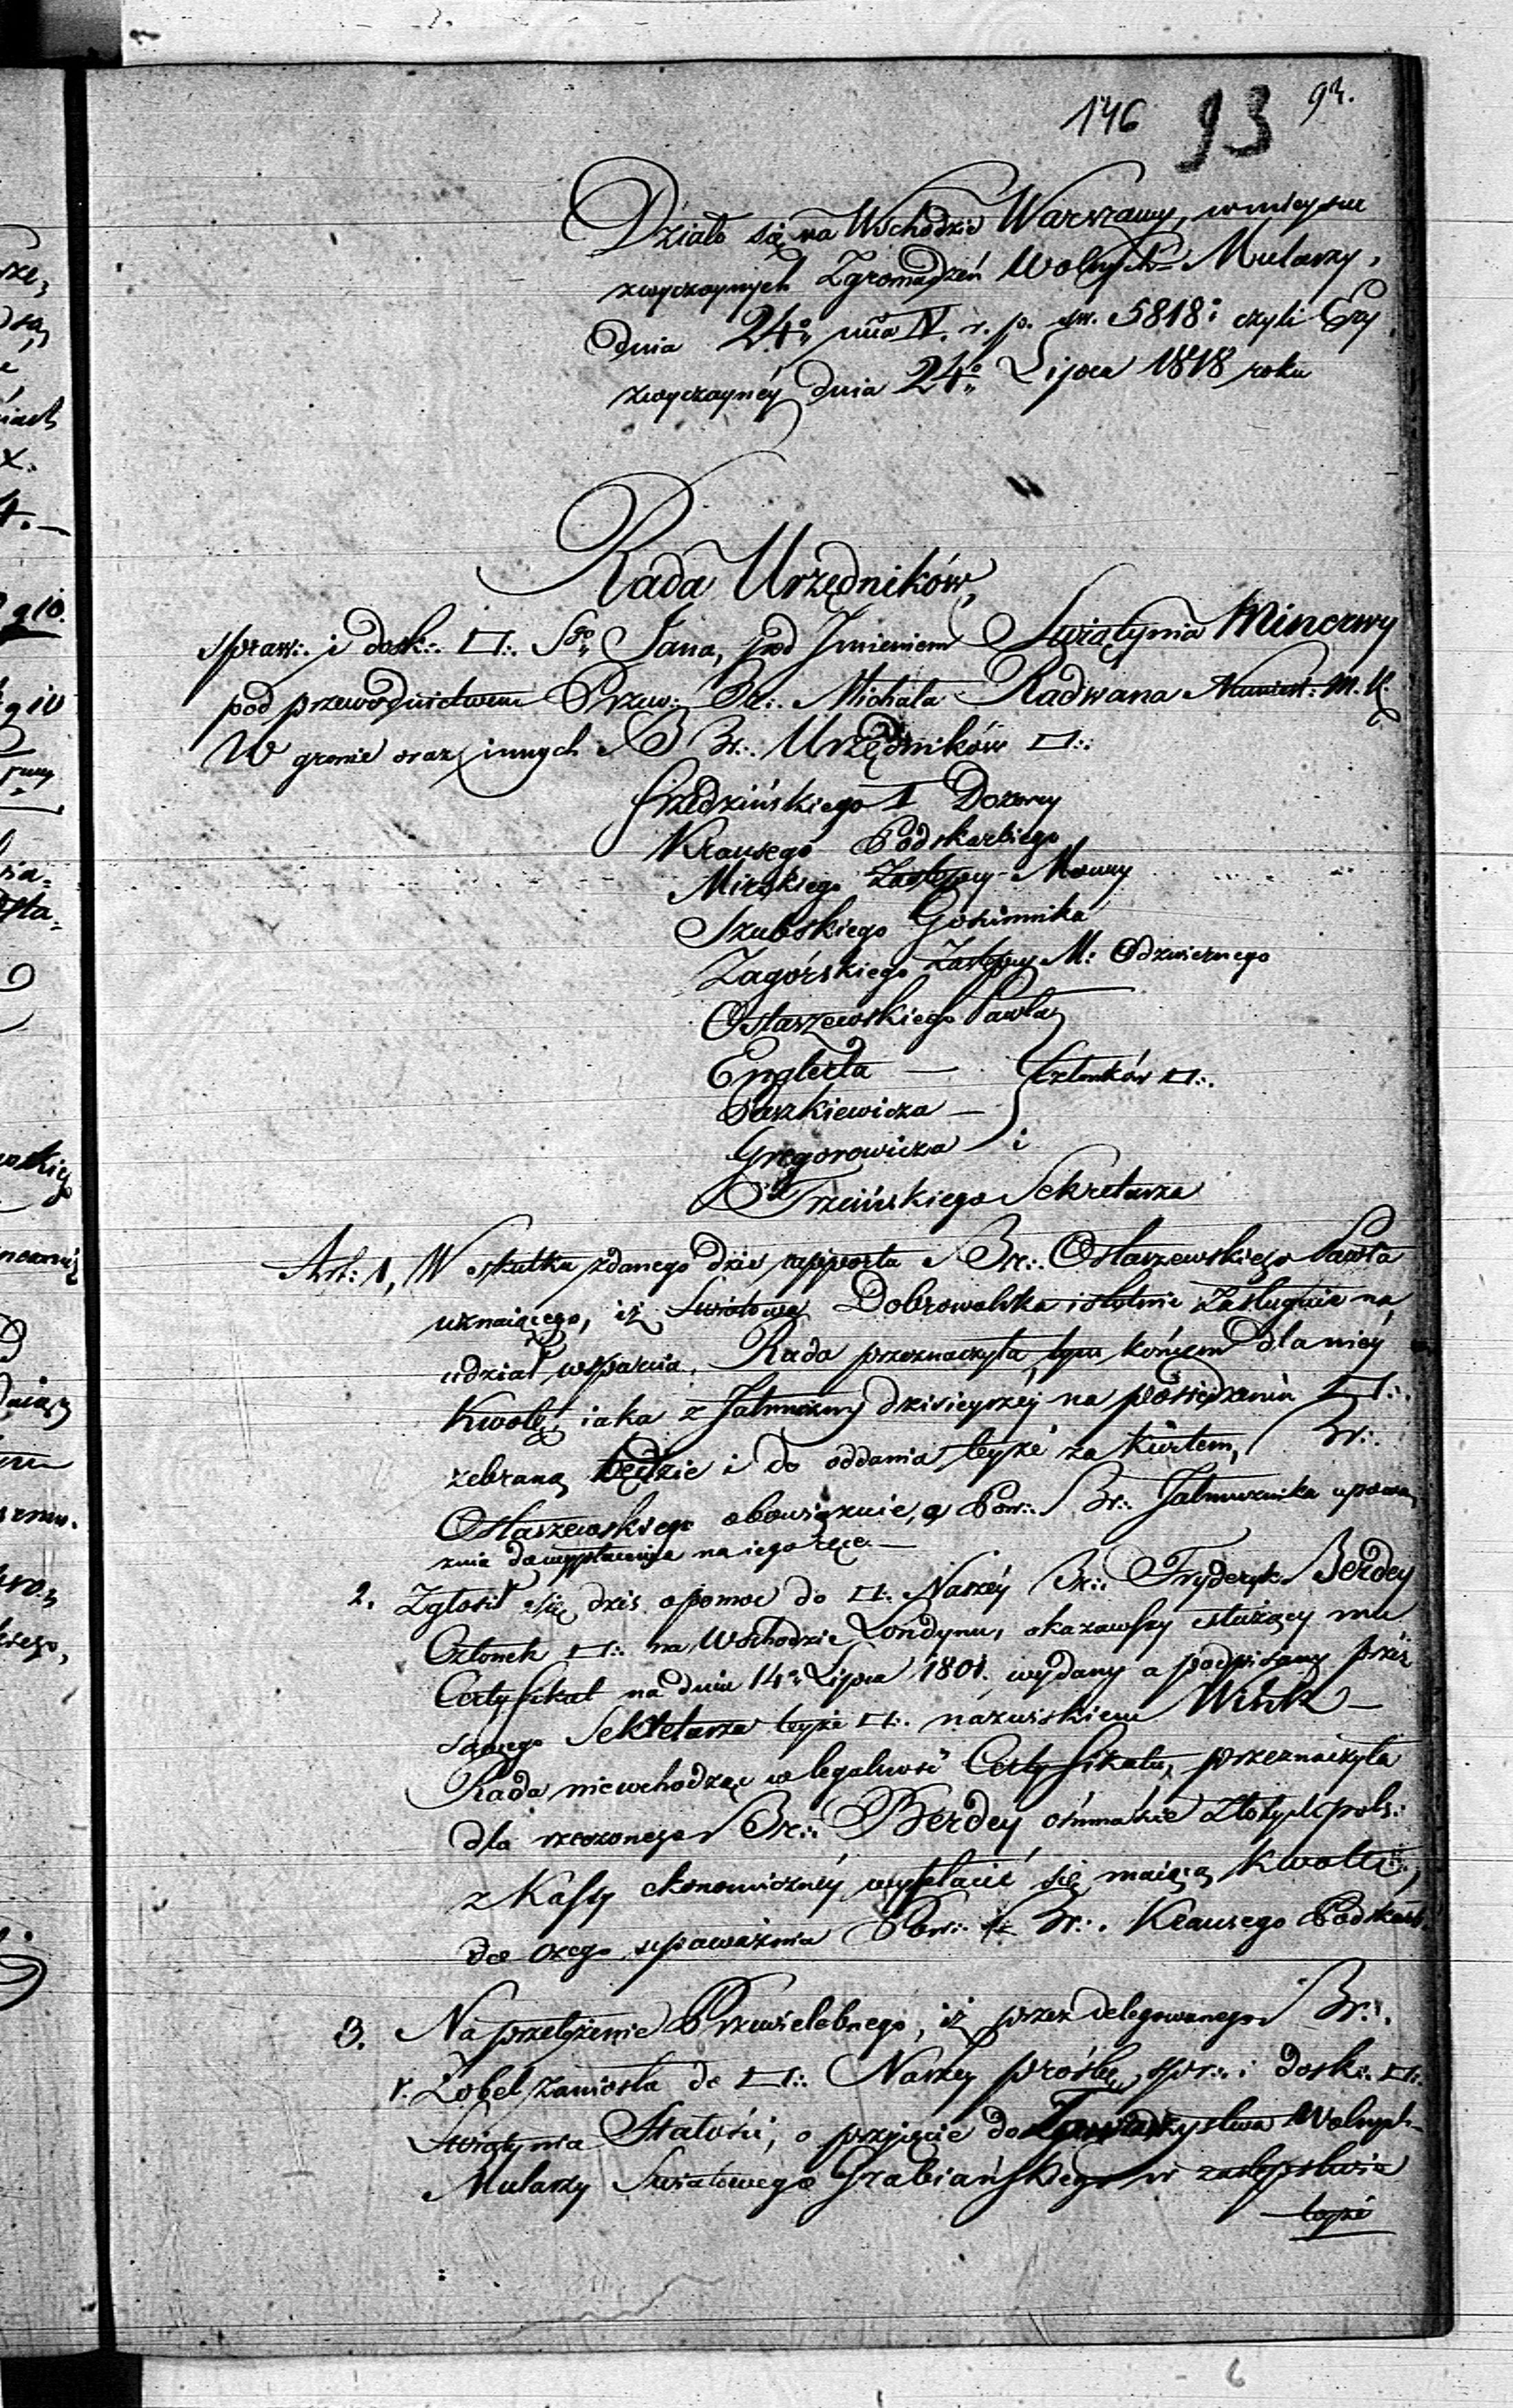 146 93 93.
Działo się na Wschodzie Warszawy, w mieyscu
zwyczaynych Zgromadzeń Wolnych Mularzy,
dnia 24o mca r. p. św. 5818: czyli Ery
zwyczaynéy dnia 24o Lipca 1818 roku
Rada Urzędników,
spraw:. i dosk:. □:. Sgo Jana, pod Jmieniem Swiątynia Minerwy
pod przewodnictwem Przew:. Br:. Michała Radwana M. K.
W gronie oraz innych B Br:. Urzędników □:.
Srzedzińskiego 1 Dozorcy
Krausego Podskarbiego
Mirskiego Zastępcy Mowcy
Szubskiego Gościnnika
Zagórskiego Zastępcy M: Odzwiernego
Ostaszewskiego Pawła
Englerta —
Paszkiewicza — Członków □:.
Gregorowicza i
Trzcińskiego Sekretarza
Art: 1, W skutku zdanego dziś rapportu Br:. Ostaszewskiego Pawła
uznaiącego, iż Swiatowa Dobrowolska istotnie zasługuie na
udział wsparcia, Rada przeznaczyła tym końcem dla niéy
Kwotę iaka z Jałmużny dzisieyszéy na posiedzeniu □:.
zebraną będzie i do oddania teyże za Kwitem, Br:.
Ostaszewskiego obowiązuie, a Pow:. Br:. Jałmużnika upowa
żnia do wypłacenia na iego ręce. —
2. Zgłosił się dziś o pomoc do □:. Naszéy Br:. Fryderyk Berdey
Członek □:. na Wschodzie Londynu, okazawszy służący mu
Certyfikat na dniu 14o Lipca 1801. wydany a podpisany przez
samego Sekretarza teyże □:. nazwiskiem Wink —
Rada niewchodząc w legalność Certyfikatu, przeznaczyła
dla rzeczonego Br:. Berdey ośmnaście Złotych pols:.
z Kassy ekonomicznéy wypłacić się maiącą kwotę,
do czego upoważnia Pow:. Br:. Krausego Podskarb.
3. Na przełożenie Przewielebnego, iż przez delegowanego Br:.
v. Zobel zaniosła do □:. Naszey prośbę, spr:. i dosk:. □:.
Swiątynia Stałości, o przyjęcie do Towarzystwa Wolnych
Mularzy Swiatowego Grabiańskiego w zastępstwie
teyże